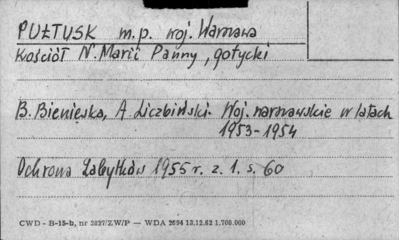 PUŁTUSK m.p. woj. Warszawa
Kościół N. Marii Panny, gotycki
B. Bieniewska, A. Liczbiński. Woj. warszawskie w latach
1953-1954
Ochrona Zabytków 1955 r. z. 1. s. 60
CWD - B-15-b, nr 2827/ZW/P — WDA 2694 13.12.62 1.700.000